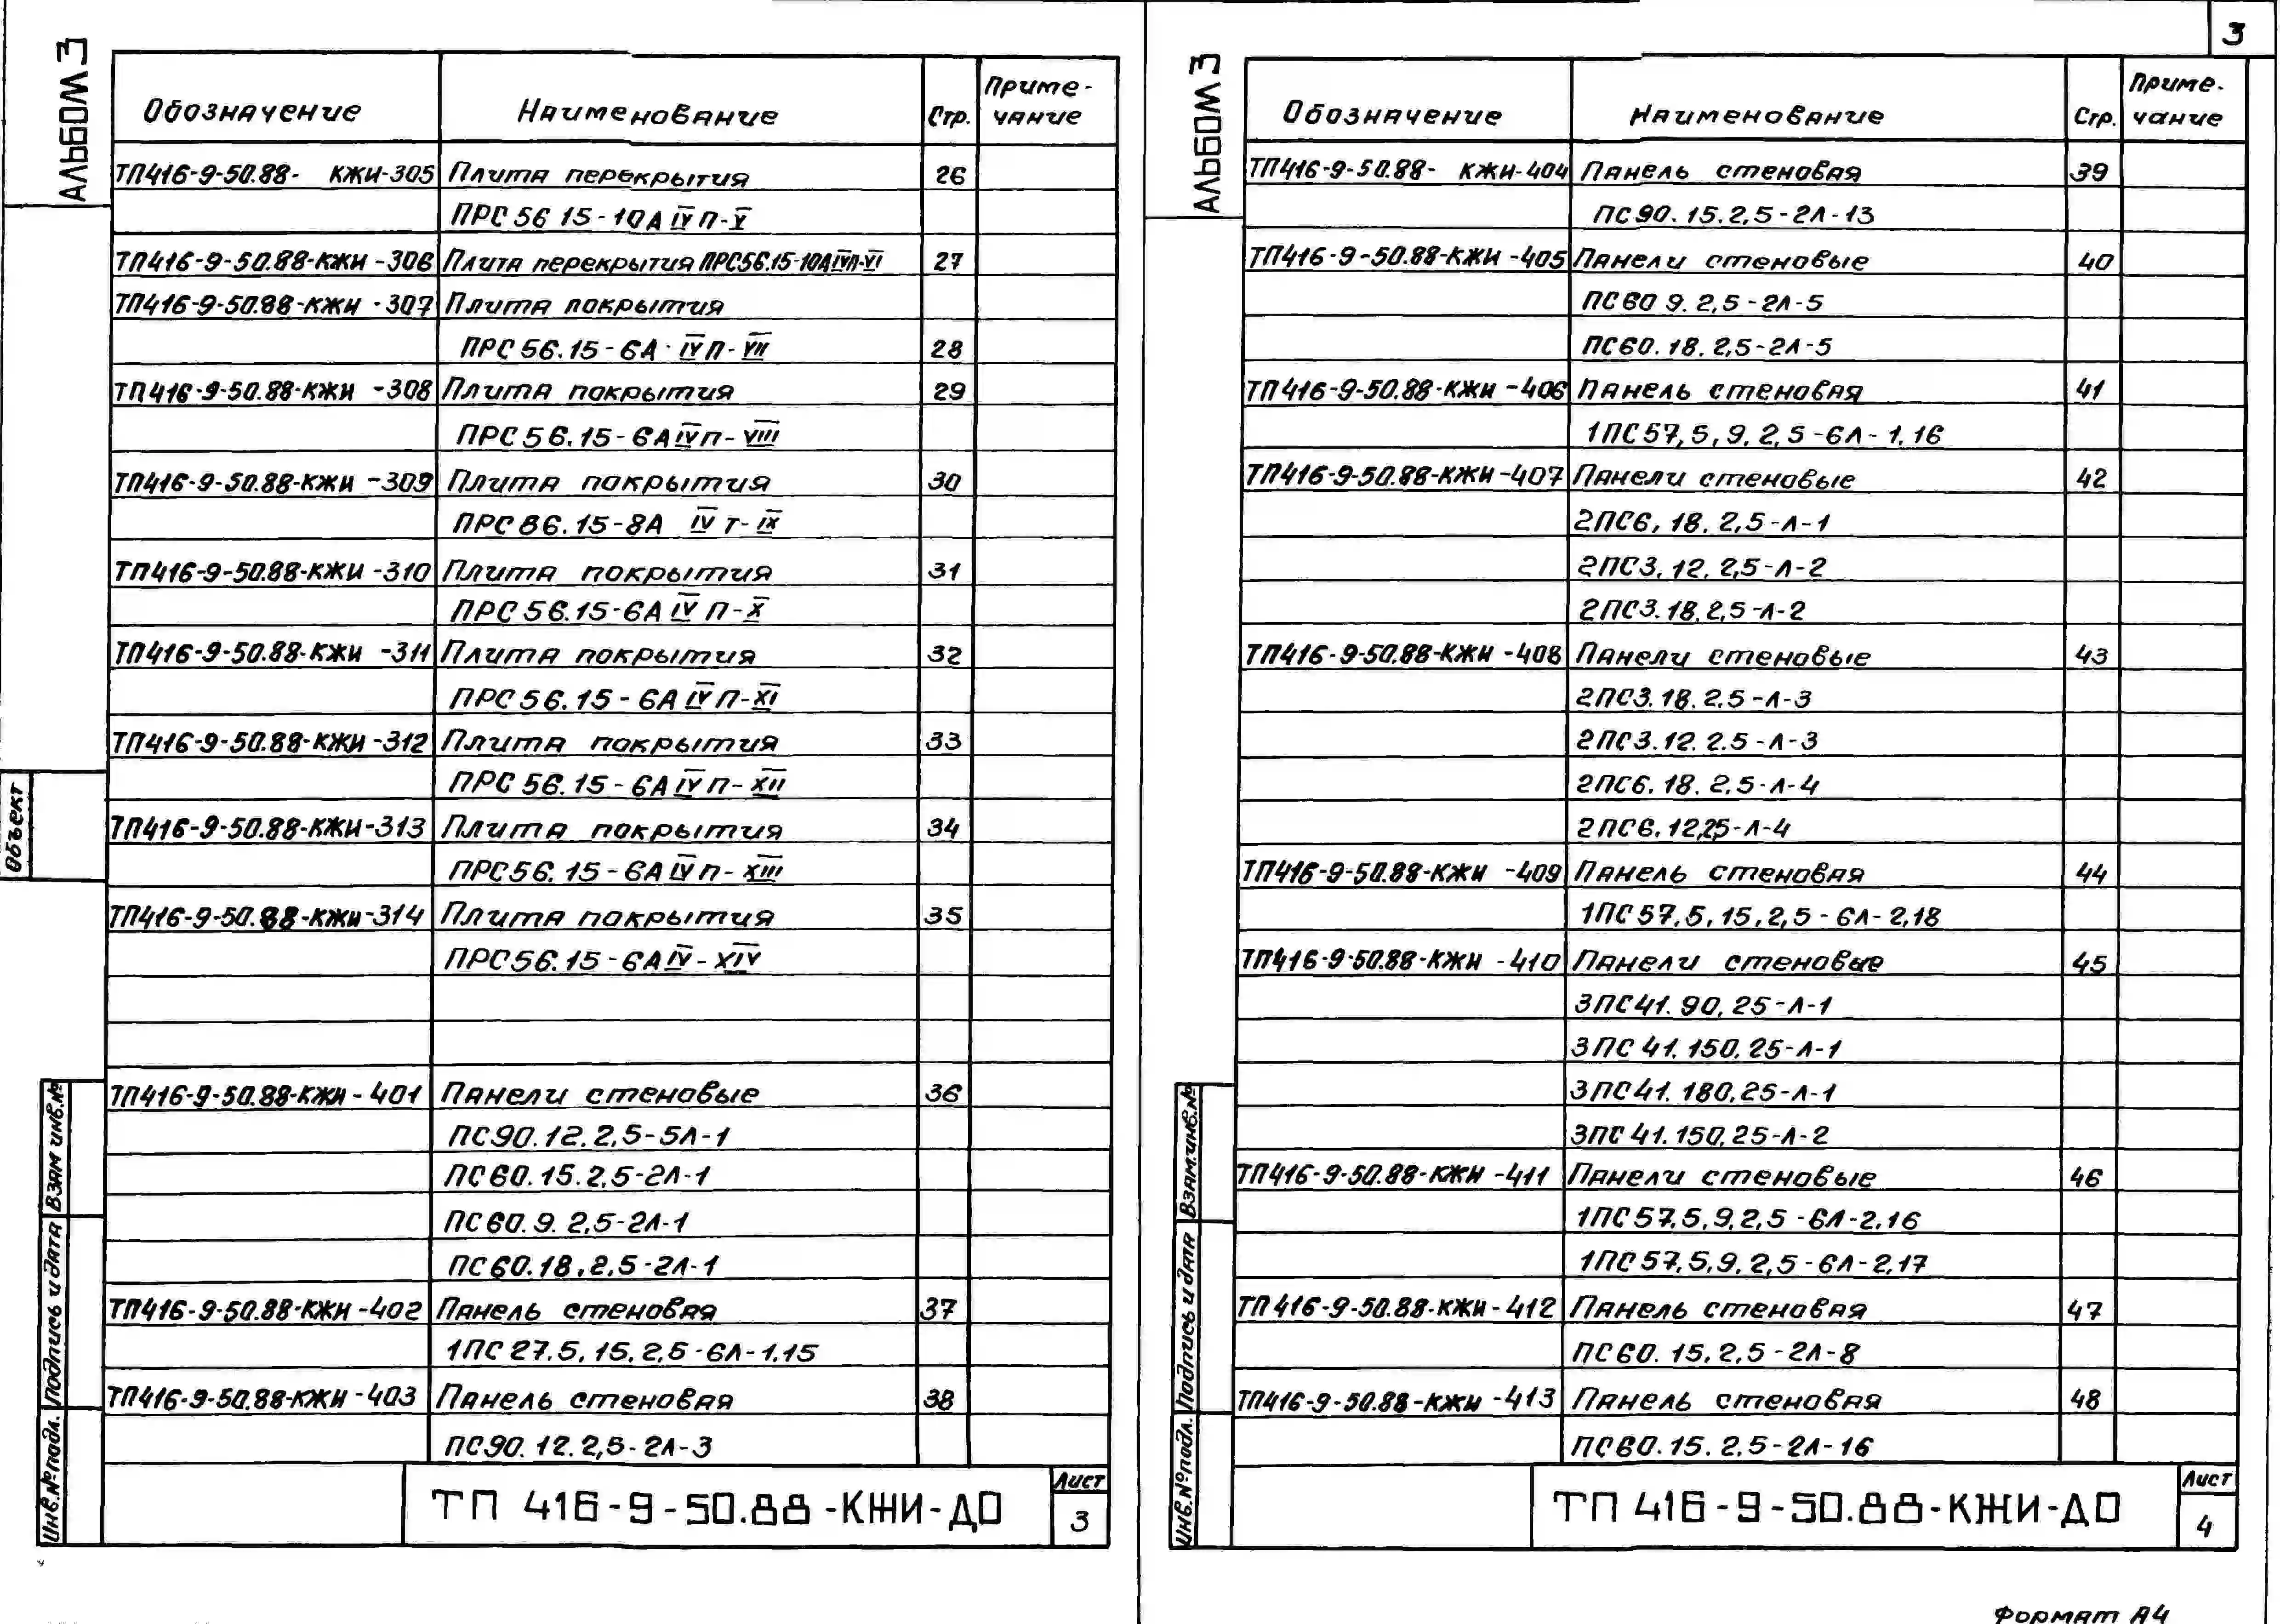 3
АЛЬБОМ 3
Обозначение Наименование Стр. Приме-
чание
ТП416-9-50.88- КЖИ-305 Плита перекрытия 26
ПРС 56 15-10А IV П-V
ТП416-9-50.88-КЖИ -306 Плита перекрытия ПРС56.15-10АIVП-VI 27
ТП416-9-50.88-КЖИ -307 Плита покрытия
ПРС 56.15-6А IV П-VII 28
ТП416-9-50.88-КЖИ -308 Плита покрытия 29
ПРС 56.15-6А IV П-VIII
ТП416-9-50.88-КЖИ -309 Плита покрытия 30
ПРС 86.15-8А IV Т-IX
ТП416-9-50.88-КЖИ -310 Плита покрытия 31
ПРС 56.15-6А IV П-X
ТП416-9-50.88-КЖИ -311 Плита покрытия 32
ПРС 56.15-6А IV П-XI
ТП416-9-50.88-КЖИ -312 Плита покрытия 33
ПРС 56.15-6А IV П-XII
ТП416-9-50.88-КЖИ-313 Плита покрытия 34
ПРС56.15-6А IV П-XIII
ТП416-9-50.88-КЖИ-314 Плита покрытия 35
ПРС56.15-6А IV-XIV
ТП416-9-50.88-КЖИ-401 Панели стеновые 36
ПС90.12.2,5-5Л-1
ПС60.15.2,5-2Л-1
ПС60.9.2,5-2Л-1
ПС60.18,2,5-2Л-1
ТП416-9-50.88-КЖИ-402 Панель стеновая 37
1ПС 27,5,15,2,5-6Л-1.15
ТП416-9-50.88-КЖИ-403 Панель стеновая 38
ПС90.12.2,5-2Л-3
Объект
Взам инв.№
Подпись и дата
Инв.№подл.
ТП 416-9-50.88-КЖИ-ДО
Лист
3
АЛЬБОМ 3
Обозначение Наименование Стр. Приме-
чание
ТП416-9-50.88- КЖИ-404 Панель стеновая 39
ПС90.15.2,5-2Л-13
ТП416-9-50.88-КЖИ -405 Панели стеновые 40
ПС60 9.2,5-2Л-5
ПС60.18.2,5-2Л-5
ТП416-9-50.88-КЖИ -406 Панель стеновая 41
1ПС57,5,9,2,5-6Л-1.16
ТП416-9-50.88-КЖИ-407 Панели стеновые 42
2ПС6,18.2,5-Л-1
2ПС3,12.2,5-Л-2
2ПС3.18.2,5-Л-2
ТП416-9-50.88-КЖИ -408 Панели стеновые 43
2ПС3.18.2.5-Л-3
2ПС3.12.2.5-Л-3
2ПС6.18.2,5-Л-4
2ПС6.12,2,5-Л-4
ТП416-9-50.88-КЖИ -409 Панель стеновая 44
1ПС57,5,15,2,5-6Л-2,18
ТП416-9-50.88-КЖИ -410 Панели стеновые 45
3ПС41.90,25-Л-1
3ПС 41.150.25-Л-1
3ПС41.180,25-Л-1
3ПС 41.150,25-Л-2
ТП416-9-50.88-КЖИ -411 Панели стеновые 46
1ПС57,5,9,2,5-6Л-2,16
1ПС57,5,9,2,5-6Л-2,17
ТП416-9-50.88-КЖИ-412 Панель стеновая 47
ПС60.15.2,5-2Л-8
ТП416-9-50.88-КЖИ -413 Панель стеновая 48
ПС60.15.2,5-2Л-16
Взам.инв.№
Подпись и дата
Инв.№подл.
ТП 416-9-50.88-КЖИ-ДО
Лист
4
Формат А4